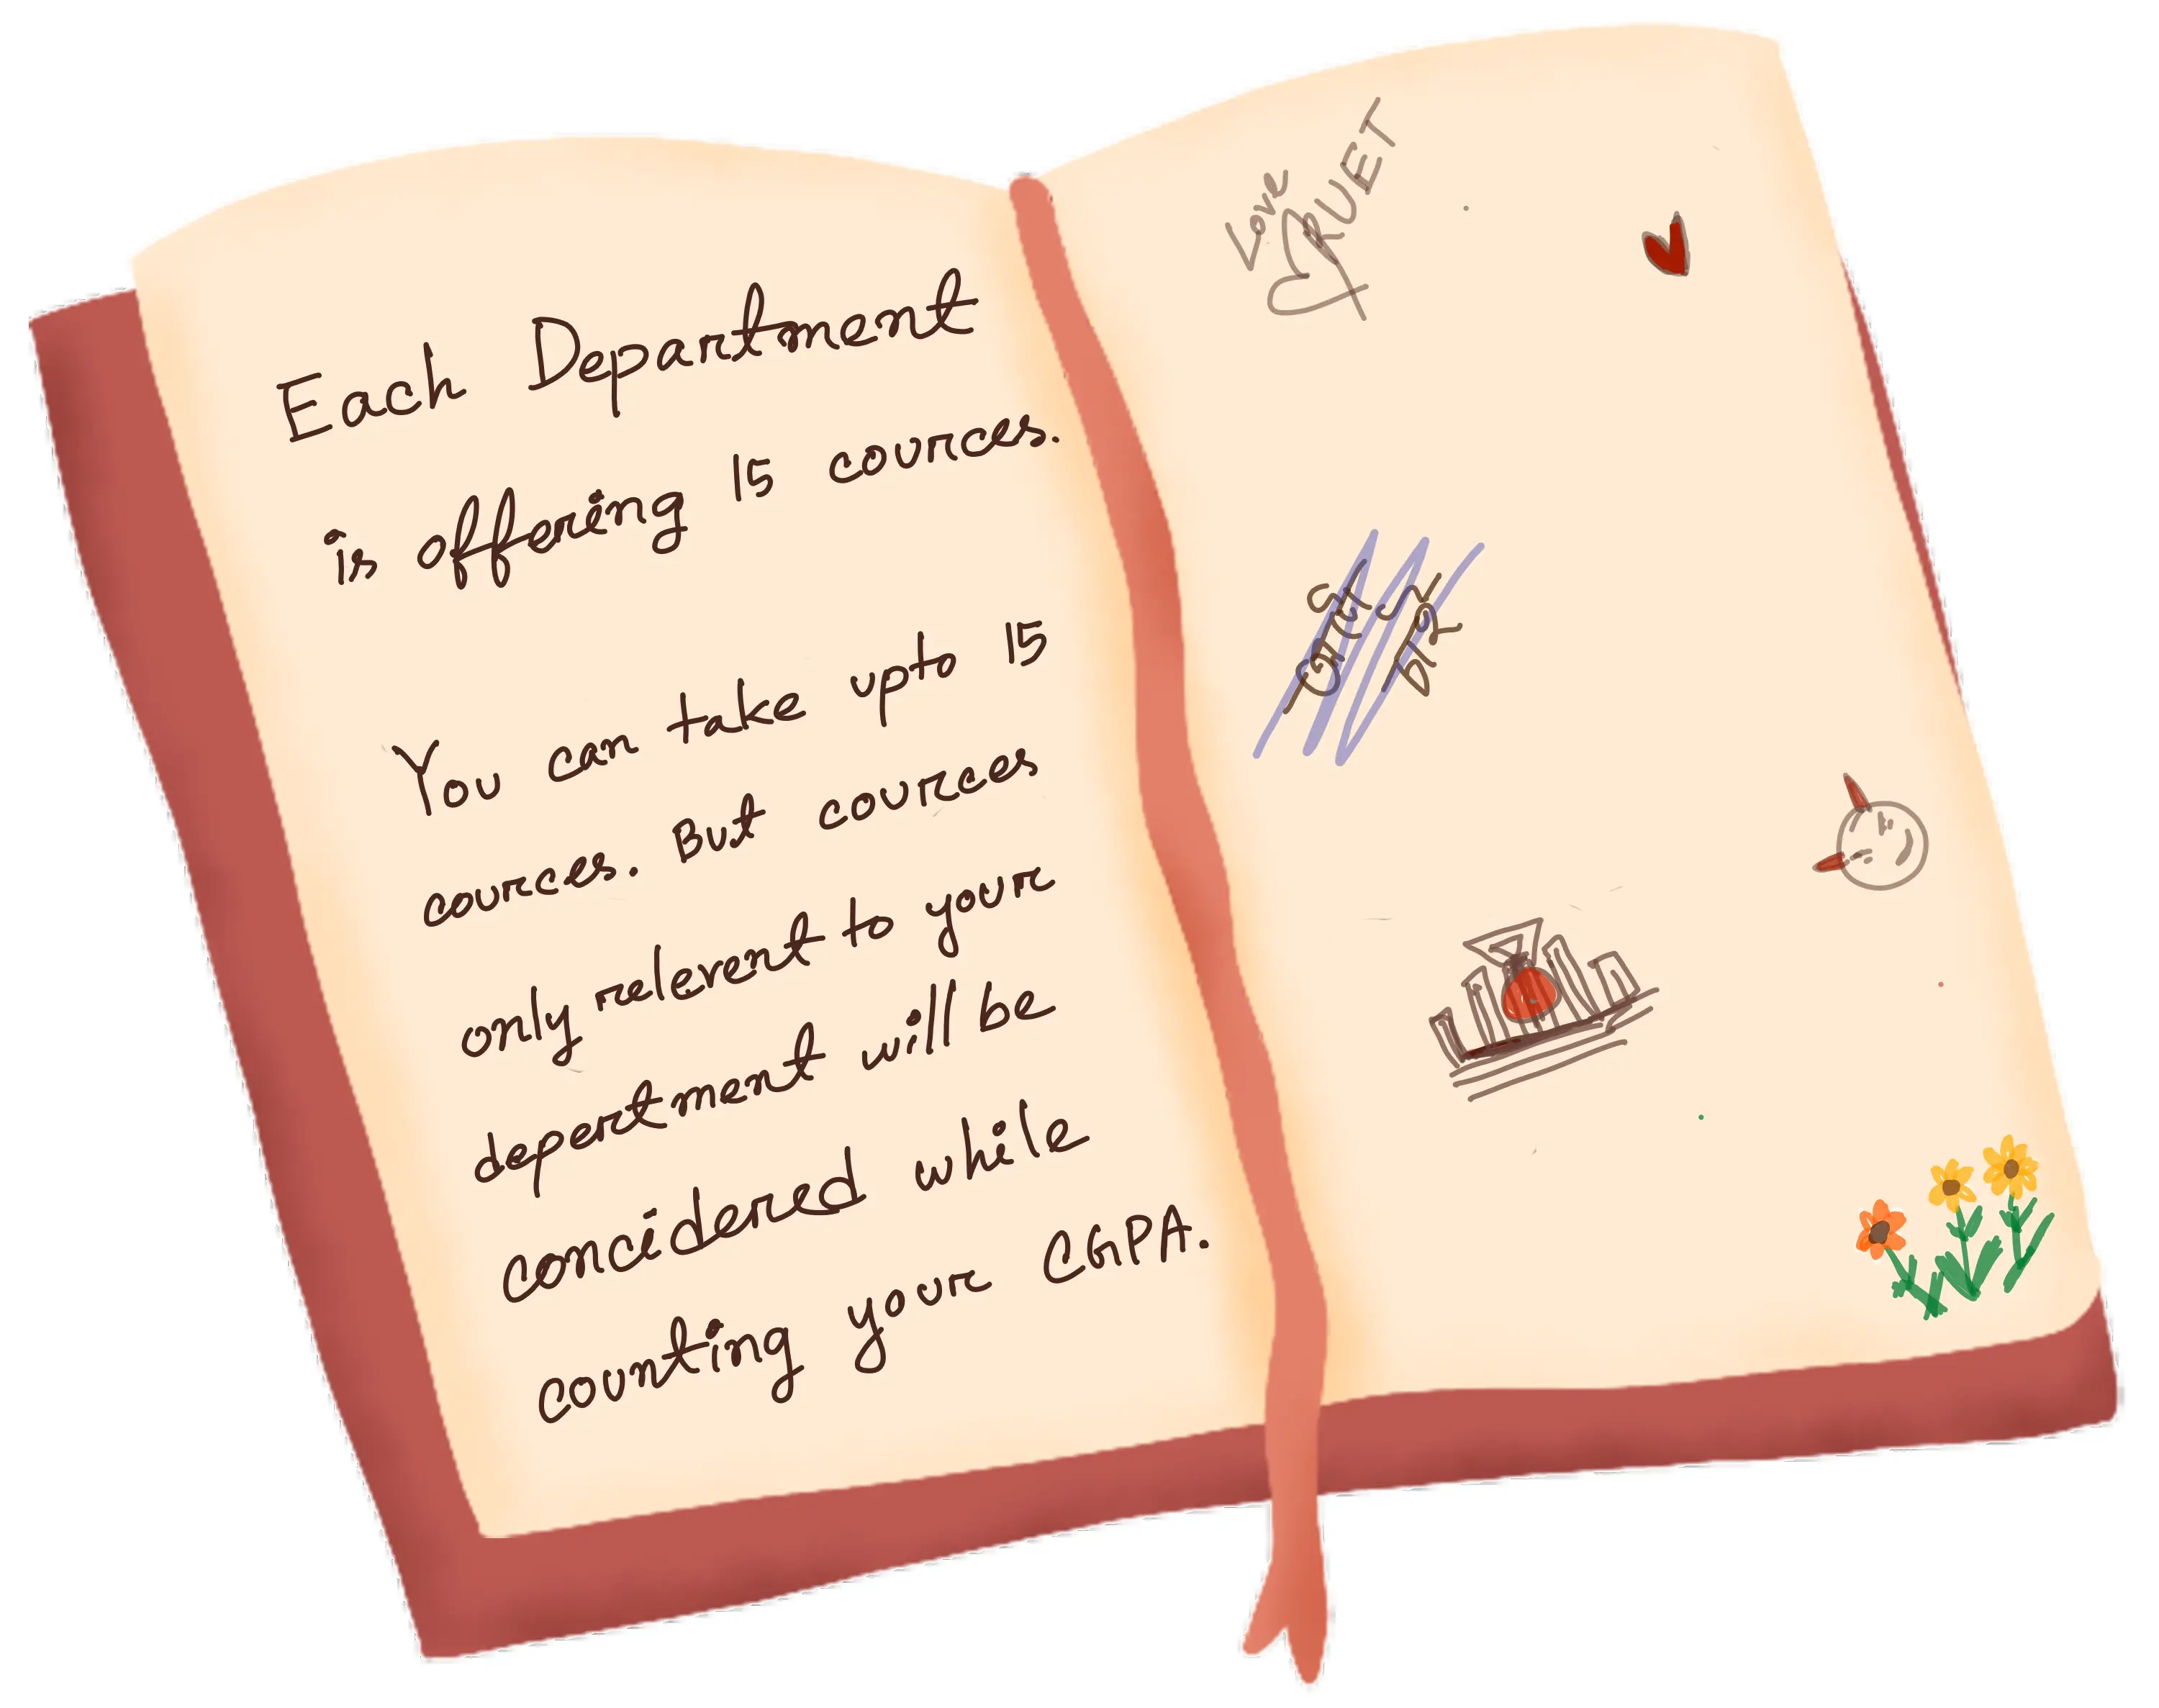 Each Department
is offering 15 cources.
You can take upto 15
cources. But cources
only relevent to your
depertment will be
concidered while
counting your CGPA.
Love
RUET